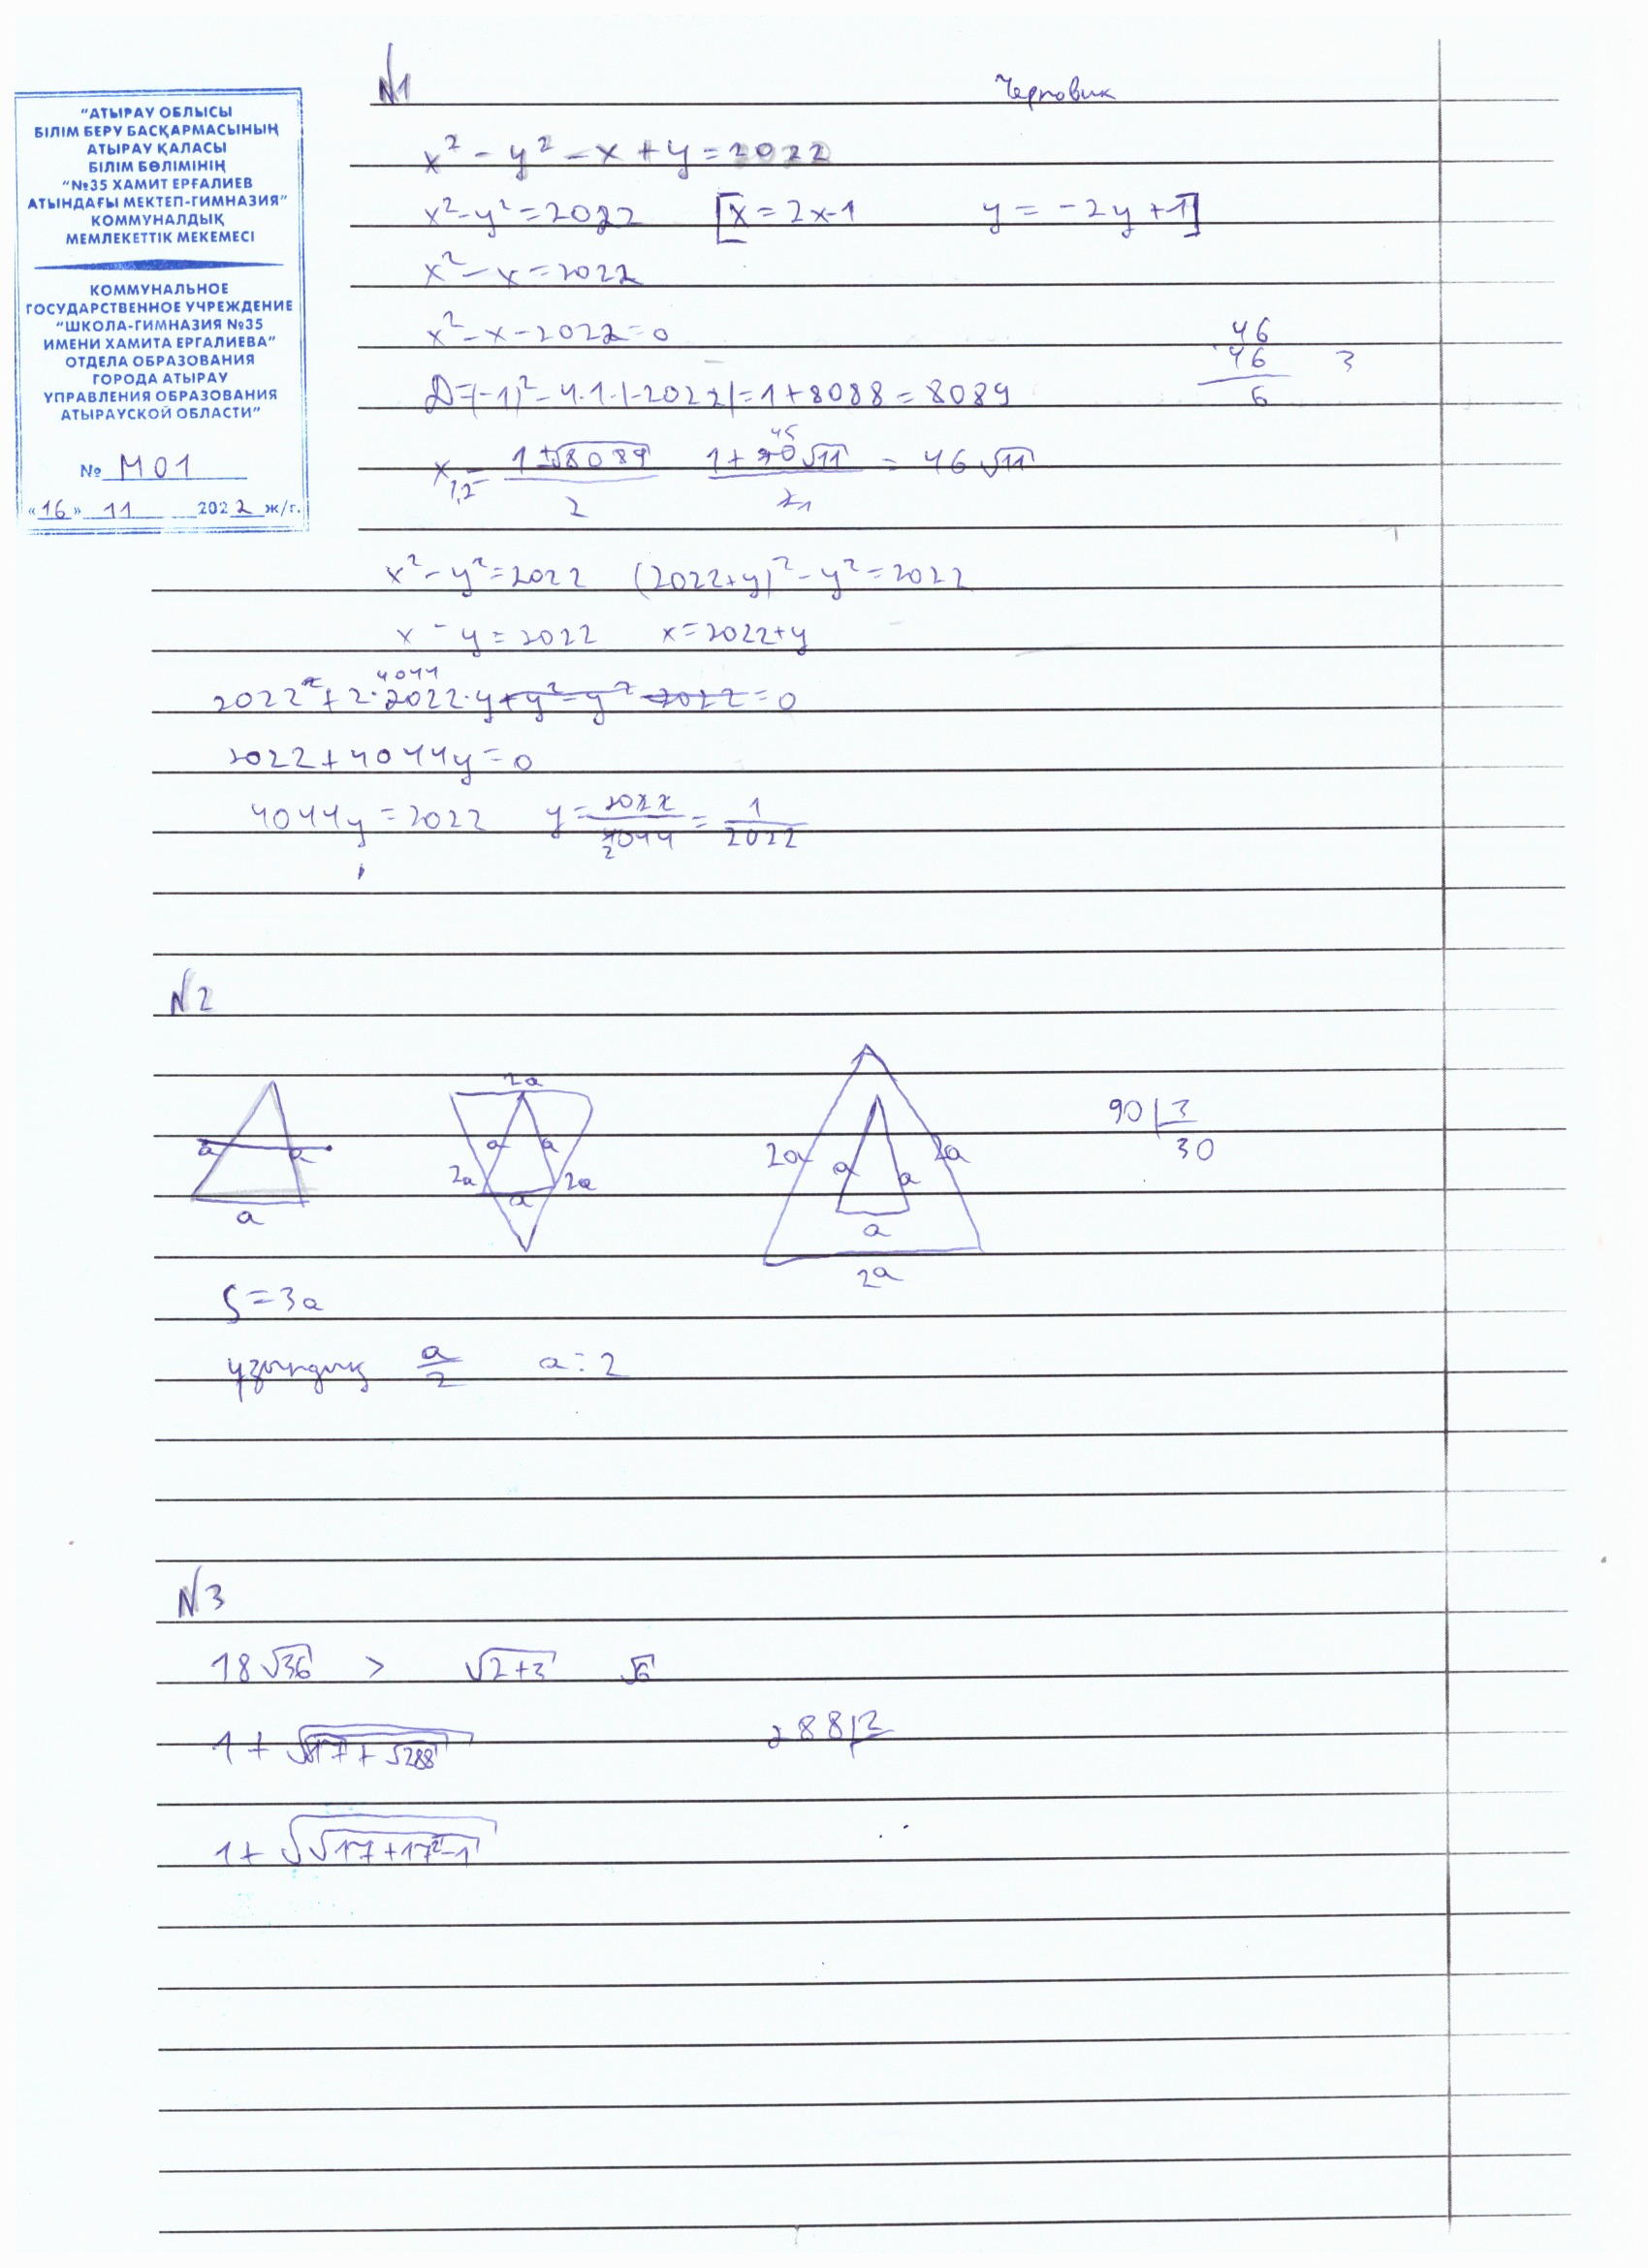 №1 Черновик
"АТЫРАУ ОБЛЫСЫ
БІЛІМ БЕРУ БАСҚАРМАСЫНЫҢ
АТЫРАУ ҚАЛАСЫ
БІЛІМ БӨЛІМІНІҢ
"№35 ХАМИТ ЕРҒАЛИЕВ
АТЫНДАҒЫ МЕКТЕП-ГИМНАЗИЯ"
КОММУНАЛДЫҚ
МЕМЛЕКЕТТІК МЕКЕМЕСІ
КОММУНАЛЬНОЕ
ГОСУДАРСТВЕННОЕ УЧРЕЖДЕНИЕ
"ШКОЛА-ГИМНАЗИЯ №35
ИМЕНИ ХАМИТА ЕРГАЛИЕВА"
ОТДЕЛА ОБРАЗОВАНИЯ
ГОРОДА АТЫРАУ
УПРАВЛЕНИЯ ОБРАЗОВАНИЯ
АТЫРАУСКОЙ ОБЛАСТИ"
№ М01
«16» 11 2022 ж/г.
x² - y² - x + y = 2022
x² - y² = 2022 [x = 2x-1 y = -2y + 1]
x² - x = 2022
x² - x - 2022 = 0
46
46 3
6
D = (-1)² - 4·1·(-2022) = 1 + 8088 = 8089
x₁,₂ = (1±√8089)/2 = 46√11
x² - y² = 2022 (2022+y)² - y² = 2022
x - y = 2022 x = 2022+y
4044
2022² + 2·2022·y + y² - y² - 2022 = 0
2022 + 4044y = 0
4044y = 2022 y = 2022/4044 = 1/2022
№2
a a
a
2a
a a
2a 2a
a
2a 2a
a a
a
2a
90 | 3
30
S = 3a
ұзындық a/2 a : 2
№3
18√36 > √2+3 √6
1 + √17 + √288 288 | 2
1 + √√17 + 17² - 1